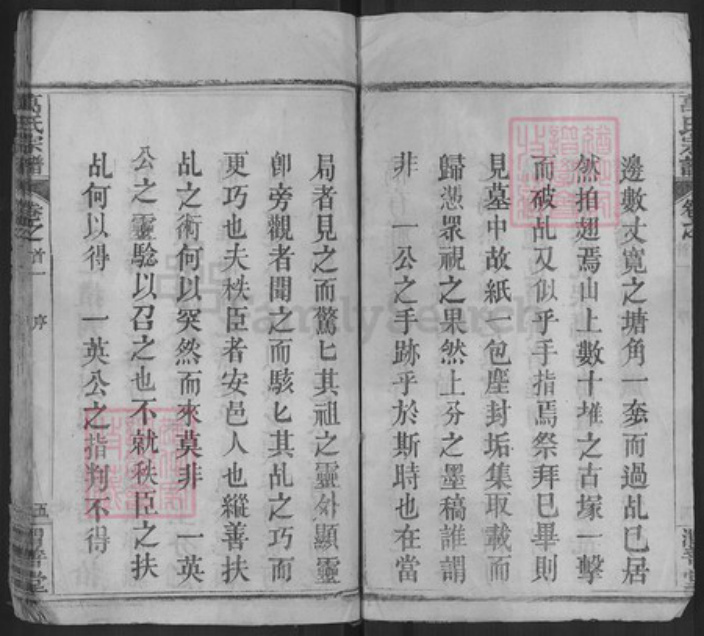 邊數丈寬之塘角一𡘊而過乩已居
然拍翅焉山上數十堆之古塚一擊
而破乩又似乎手指焉祭拜已畢則
見墓中故紙一包塵封垢集取載而
歸憑眾視之果然上分之墨稿誰謂
非 一公之手跡乎於斯時也在當
局者見之而驚匕其祖之靈外顯靈
卽旁觀者聞之而駭匕其乩之巧而
更巧也夫秩臣者安邑人也縱善扶
乩之術何以突然而來莫非 一英
公之靈驗以召之也不就秩臣之扶
乩何以得 一英公之指判不得
萬氏宗譜
卷之首一 序
五
FamilySearch